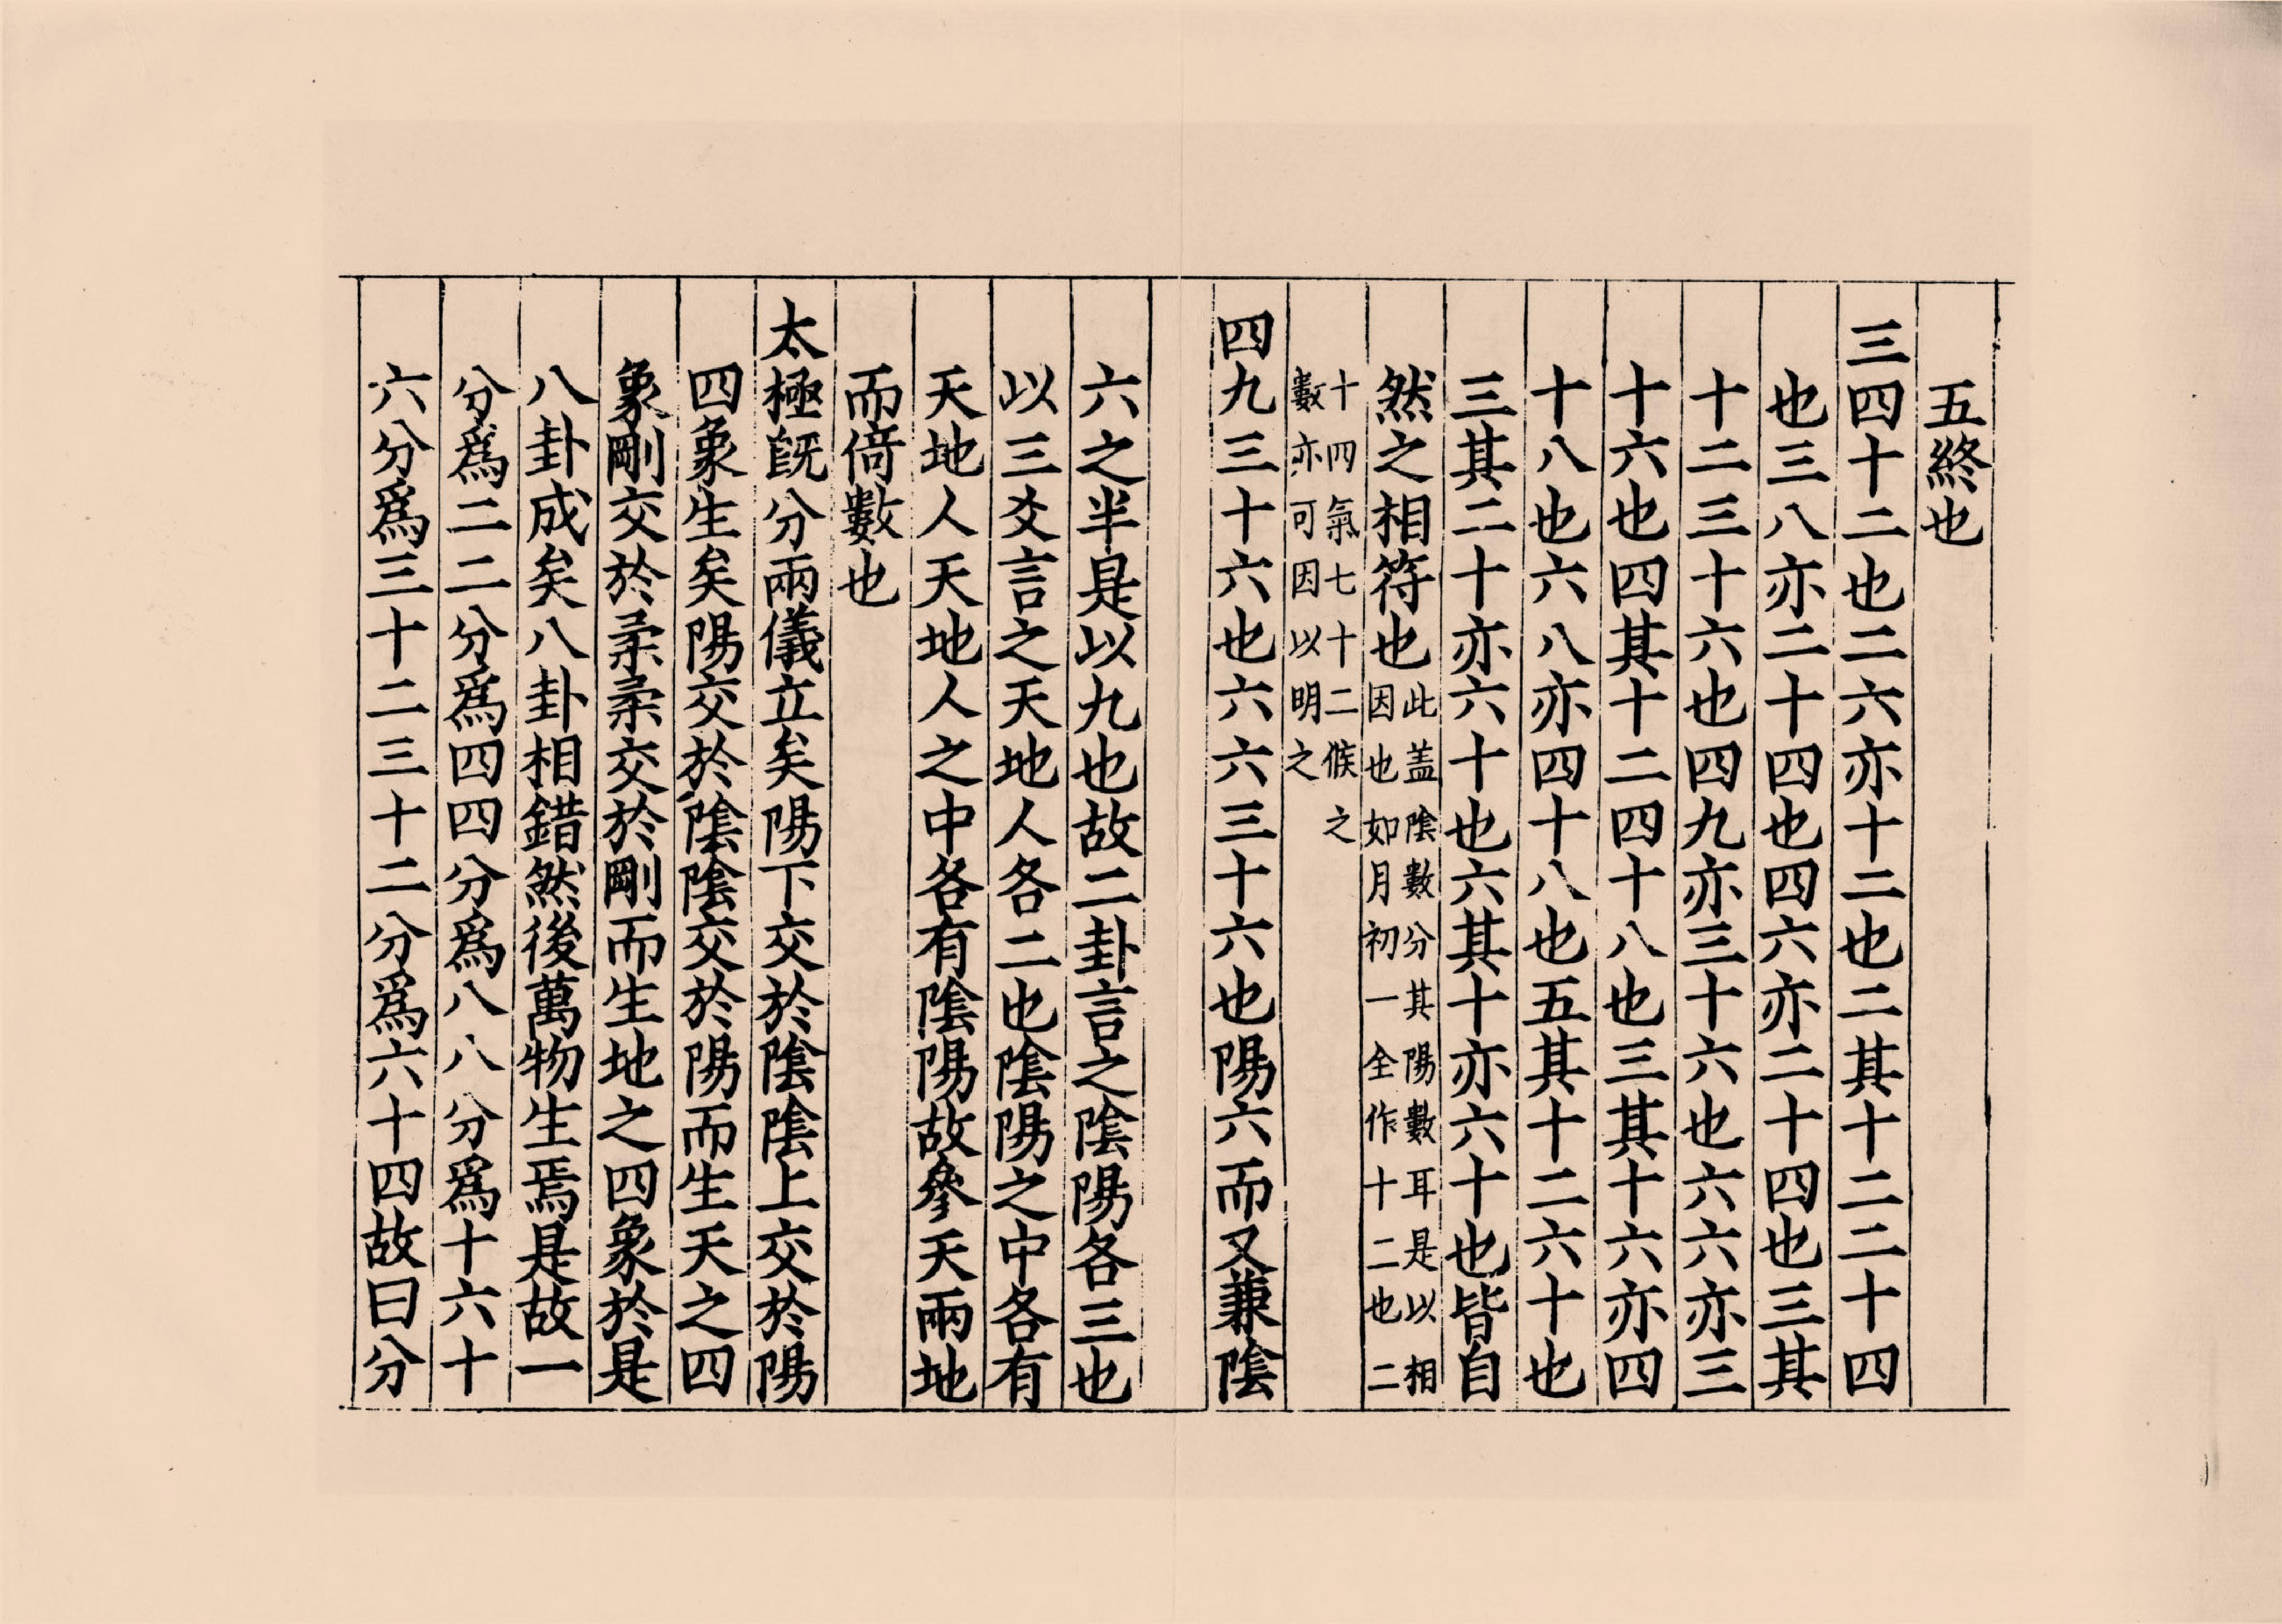 五終也
三四十二也二六亦十二也二其十二二十四
也三八亦二十四也四六亦二十四也三其
十二三十六也四九亦三十六也六六亦三
十六也四其十二四十八也三其十六亦四
十八也六八亦四十八也五其十二六十也
三其二十亦六十也六其十亦六十也皆自
然之相符也
此盖陰數分其陽數耳是以相
因也如月初一全作十二也二
十四氣七十二候之
數亦可因以明之
四九三十六也六六三十六也陽六而又兼陰
六之半是以九也故二卦言之陰陽各三也
以三爻言之天地人各二也陰陽之中各有
天地人天地人之中各有陰陽故參天兩地
而倚數也
太極旣分兩儀立矣陽下交於陰陰上交於陽
四象生矣陽交於陰陰交於陽而生天之四
象剛交於柔柔交於剛而生地之四象於是
八卦成矣八卦相錯然後萬物生焉是故一
分爲二二分爲四四分爲八八分爲十六十
六分爲三十二三十二分爲六十四故曰分